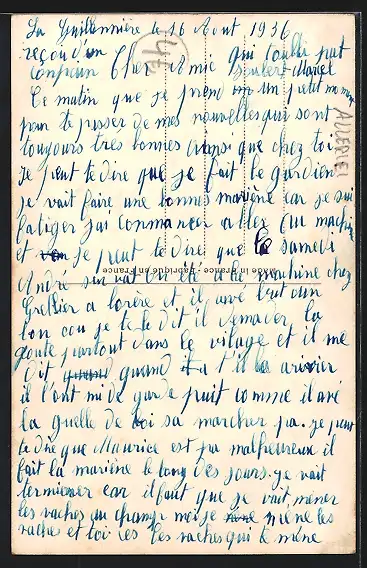 La Guillennière le 16 Aout 1936
reçoi d'un
conpain Cher Amie qui toubli pat
Joubert Marcel
Ce matin que je prend un petit moment
pour te passer de mes nouvelles qui sont
toujours très bonnes Ainsi que chez toi
Je peut te dire que je fait le gardien
je vait faire une bonnes marière car je sui
fatiger j'ai conmancer a aller au machin
et je peut te dire que le samedi
André on été a la machine chez
a lorère et il avé but
bon cou je te le dit il la
goute partout dans le vilage et il me
dit quand il a
il l'ont mi de garde puit comme il avé
la quelle de boi sa marcher pa. je peut
te dire que Maurice est pa malheureux il
fait la marière le long des jours. je vait
termiener car il faut que je vait mener
les vaches au champ moi je mène les
vaches et toi ces les vaches qui te mène
Made in France - Fabriqué en France